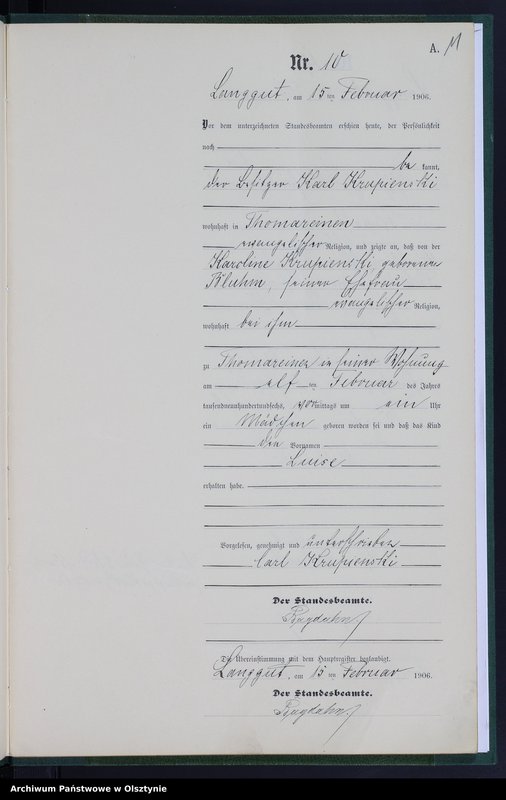 A. 11
Nr. 10
Langgut, am 15 ten Februar 1906.
Vor dem unterzeichneten Standesbeamten erschien heute, der Persönlichkeit
nach
be kannt,
der Besitzer Karl Krupienski
wohnhaft in Thomareinen
evangelischer Religion, und zeigte an, daß von der
Karoline Krupienski geborenen
Bluhm, seiner Ehefrau
evangelischer Religion,
wohnhaft bei ihm
zu Thomareinen in seiner Wohnung
am elf ten Februar des Jahres
tausendneunhundertundsechs, vormittags um ein Uhr
ein Mädchen geboren worden sei und daß das Kind
den Vornamen
Luise
erhalten habe.
Vorgelesen, genehmigt und unterschrieben
Carl Krupienski
Der Standesbeamte.
Die Übereinstimmung mit dem Hauptregister beglaubigt.
Langgut, am 15 ten Februar 1906.
Der Standesbeamte.
Archiwum Państwowe w Olsztynie